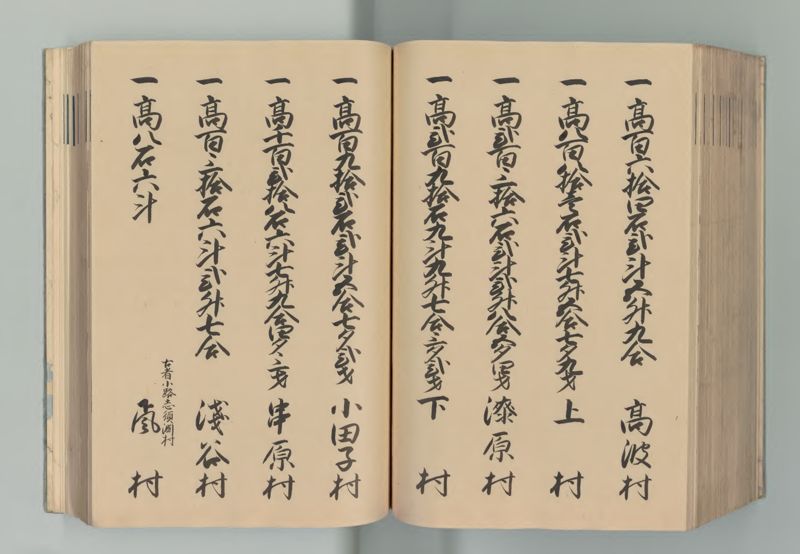 一高百六拾四石弐斗五升九合 高波村
一高八百八拾壱石弐斗七升五合七夕九才 上村
一高弐百三拾六石弐斗弐升八合五夕四才 漆原村
一高弐百九拾石九斗九升七合三夕弐才 下村
一高百九拾弐石弐斗五合七夕弐才 小田子村
一高千百弐拾八石六斗七升九合四夕三才 串原村
一高百三拾石六斗弐升七合 浅谷村
古者小路志須淵村
一高八石六斗 嵐村